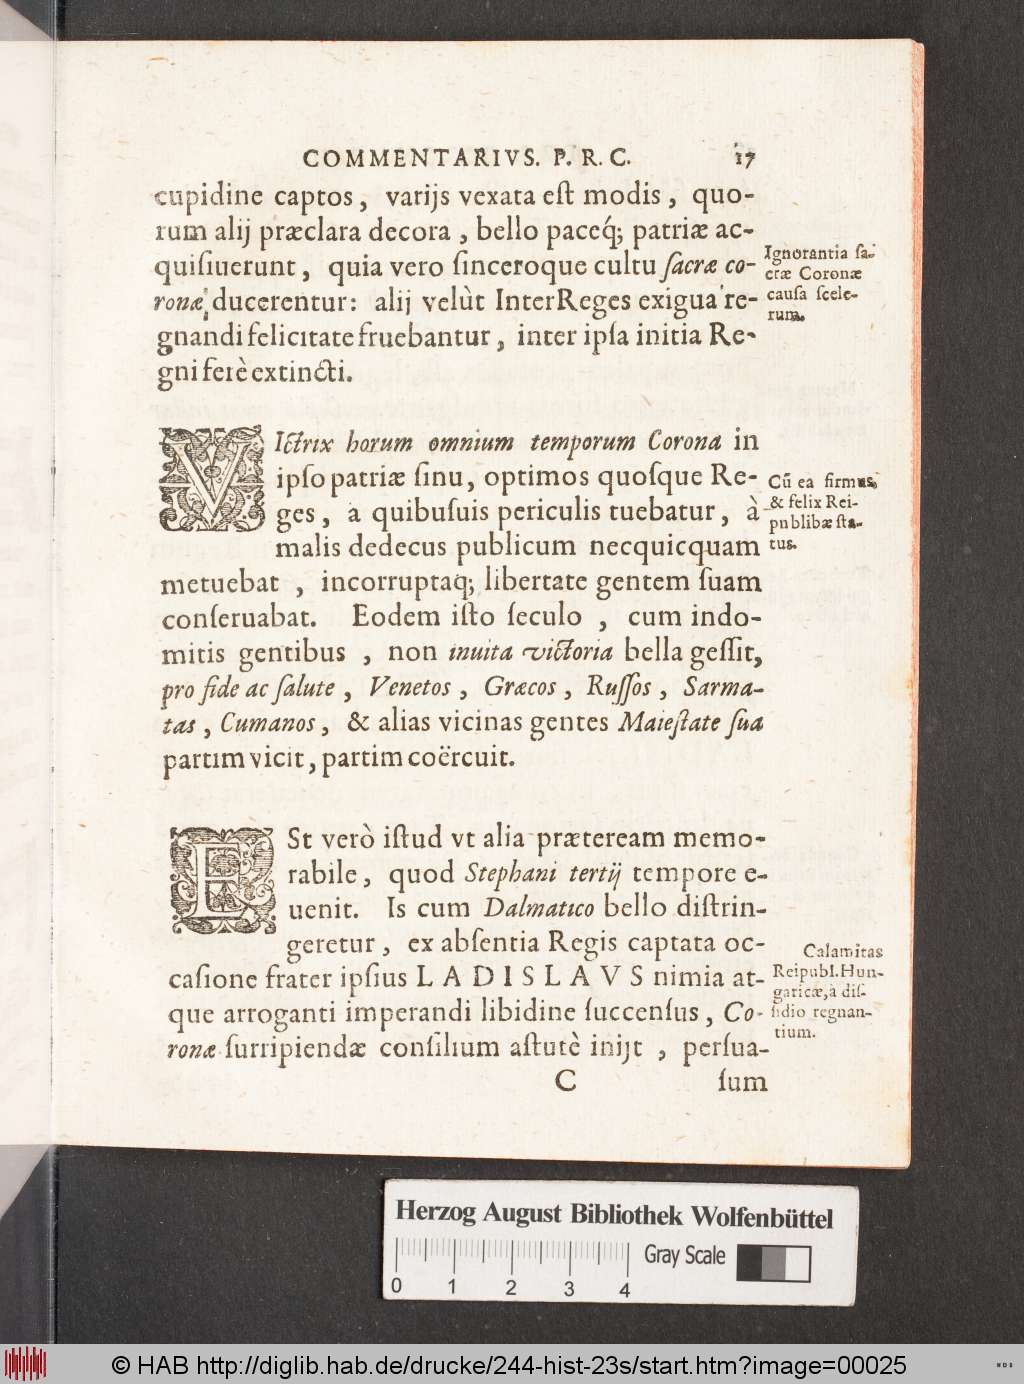 COMMENTARIVS. P. R. C. 17
cupidine captos, varijs vexata eſt modis, quo-
rum alij præclara decora, bello paceq́; patriæ ac-
quiſiuerunt, quia vero ſinceroque cultu ſacræ co-
ronæ ducerentur: alij velùt InterReges exigua re-
gnandi felicitate fruebantur, inter ipſa initia Re-
gni ferè extincti.
Ignorantia ſa-
cræ Coronæ
cauſa ſcele-
rum.
VIctrix horum omnium temporum Corona in
ipſo patriæ ſinu, optimos quoſque Re-
ges, à quibuſuis periculis tuebatur, à
malis dedecus publicum necquicquam
metuebat, incorruptaq́; libertate gentem ſuam
conſeruabat. Eodem iſto ſeculo, cum indo-
mitis gentibus, non inuita victoria bella geſſit,
pro fide ac ſalute, Venetos, Græcos, Ruſſos, Sarma-
tas, Cumanos, & alias vicinas gentes Maieſtate ſua
partim vicit, partim coërcuit.
Cū ea firmus,
& felix Rei-
publibæ ſta-
tus.
ESt verò iſtud vt alia præteream memo-
rabile, quod Stephani tertij tempore e-
uenit. Is cum Dalmatico bello diſtrin-
geretur, ex abſentia Regis captata oc-
caſione frater ipſius LADISLAVS nimia at-
que arroganti imperandi libidine ſuccenſus, Co-
ronæ ſurripiendæ conſilium aſtutè inijt, perſua-
C ſum
Calamitas
Reipubl. Hun-
garicæ, à diſ-
ſidio regnan-
tium.
Herzog August Bibliothek Wolfenbüttel
Gray Scale
0 1 2 3 4
© HAB http://diglib.hab.de/drucke/244-hist-23s/start.htm?image=00025